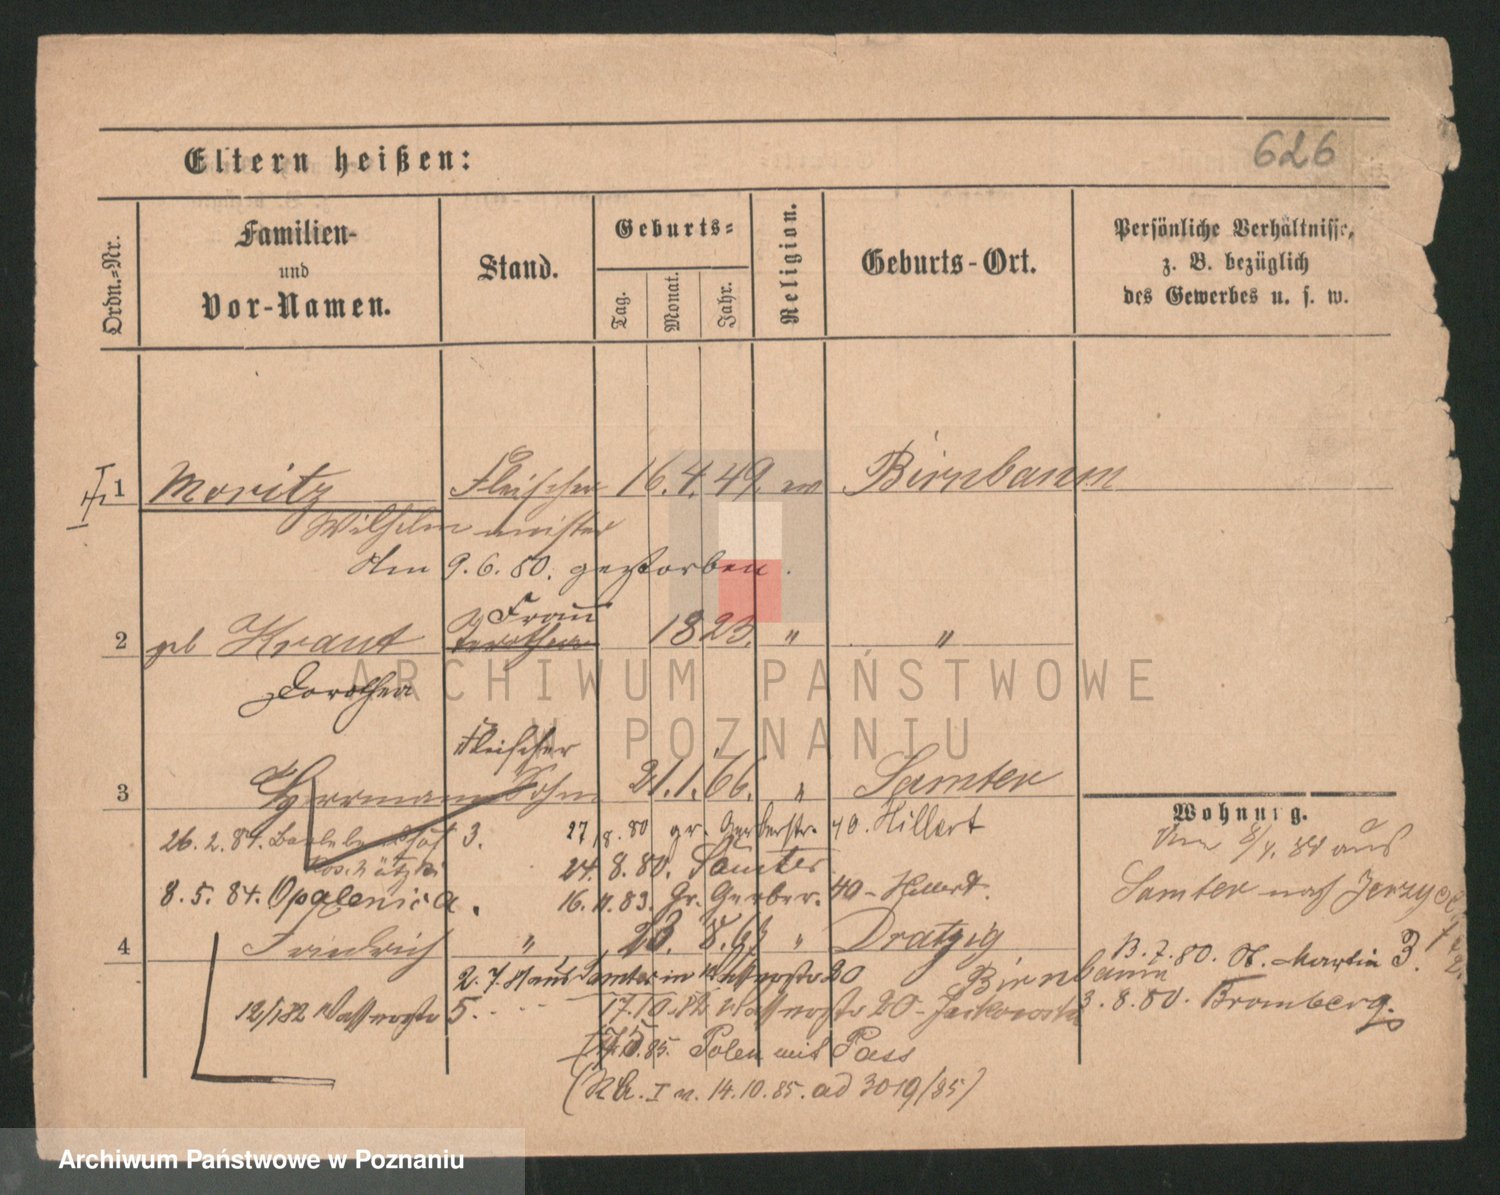 626
Eltern heißen:
Ordn.-Nr.
Familien-
und
Vor-Namen.
Stand.
Geburts-
Tag.
Monat.
Jahr.
Religion.
Geburts-Ort.
Persönliche Verhältnisse,
z. B. bezüglich
des Gewerbes u. s. w.
1 Moritz Fleischer 16. 4. 49. ev Birnbaum
Wilhelm meister
Am 9. 6. 80. gestorben.
Frau
2 geb Kraut 1823. " "
Dorothea
Fleischer
3 Herrmann Sohn 21. 1. 66. " Samter
Wohnung.
26. 2. 84. 3. 27/8. 80 gr. Gerberstr. 40. Hillert
Am 8/4. 80 aus
24. 8. 80. Samter
Samter nach Jerzyce
8. 5. 84. Opalenica. 16. 11. 83. Gr. Gerber. 40 - Hillert.
4 Friedrich " 23. 8. 63 " Dratzig
13. 7. 80. St. Martin 3.
2. 7. aus Samter in Wasserstr 20 Birnbaum
12/1 82 Wasserstr 5. 17. 10. 82 Wasserstr 20 - 3. 8. 80. Bromberg.
85. Polen mit Pass
I v. 14. 10. 85. ad 3019/85)
ARCHIWUM PAŃSTWOWE
W POZNANIU
Archiwum Państwowe w Poznaniu